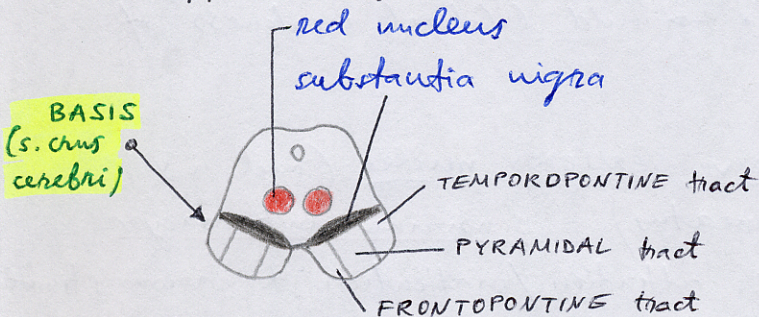 red nucleus
substantia nigra
BASIS
(s. crus
cerebri)
TEMPOROPONTINE tract
PYRAMIDAL tract
FRONTOPONTINE tract